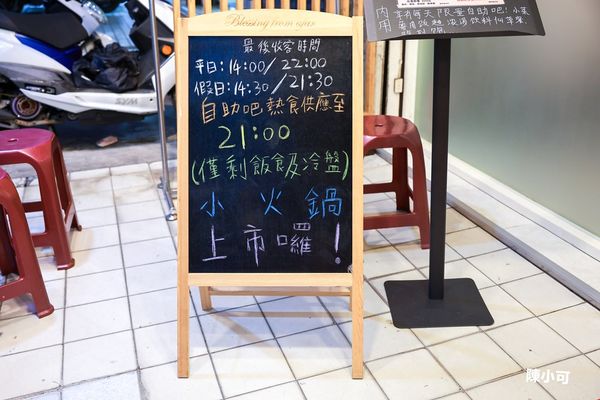 Blessing from ours
最後收客時間
平日:14:00/22:00
假日:14:30/21:30
自助吧熱食供應至
21:00
(僅剩飯食及冷盤)
小火鍋
上市囉!
SYM
陳小可